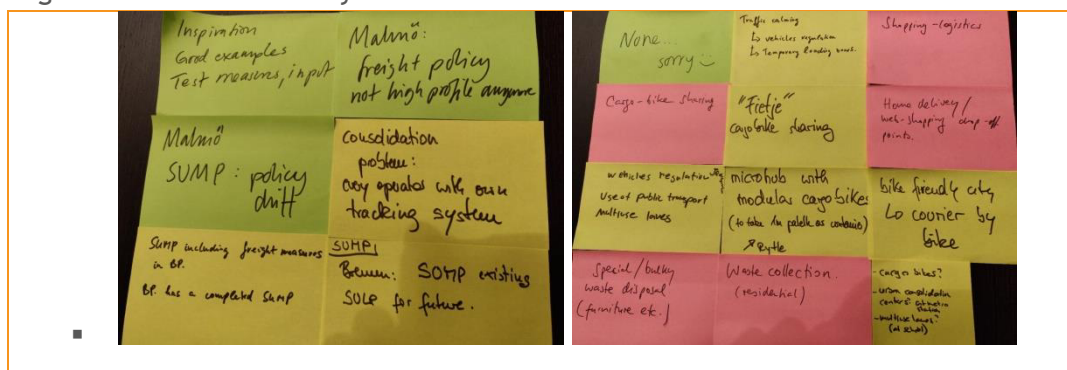 Inspiration
Good examples
Test measures, input
Malmö:
freight policy
not high profile anymore
Malmö
SUMP: policy
drift
consolidation
problem:
every operator with own
tracking system
SUMP including freight measures
in BP.
BP. has a completed SUMP
SUMP
Bremen: SUMP existing
SULP for future.
None...
sorry
Traffic calming
↳ vehicles regulation
↳ Temporary loading
Shopping-logistics
Cargo-bike sharing
"Fietje"
cargobike sharing
Home delivery/
web-shopping drop-off
points.
vehicles regulation
Use of public transport
Multiuse lanes
microhub with
modular cargobikes
(to take in palette as container)
↗ Rytle
bike friendly city
↳ courier by
bike
Special/bulky
waste disposal
(furniture etc.)
Waste collection.
(residential)
- cargo bikes?
- urban consolidation
station
- multiuse lanes?
(at school)